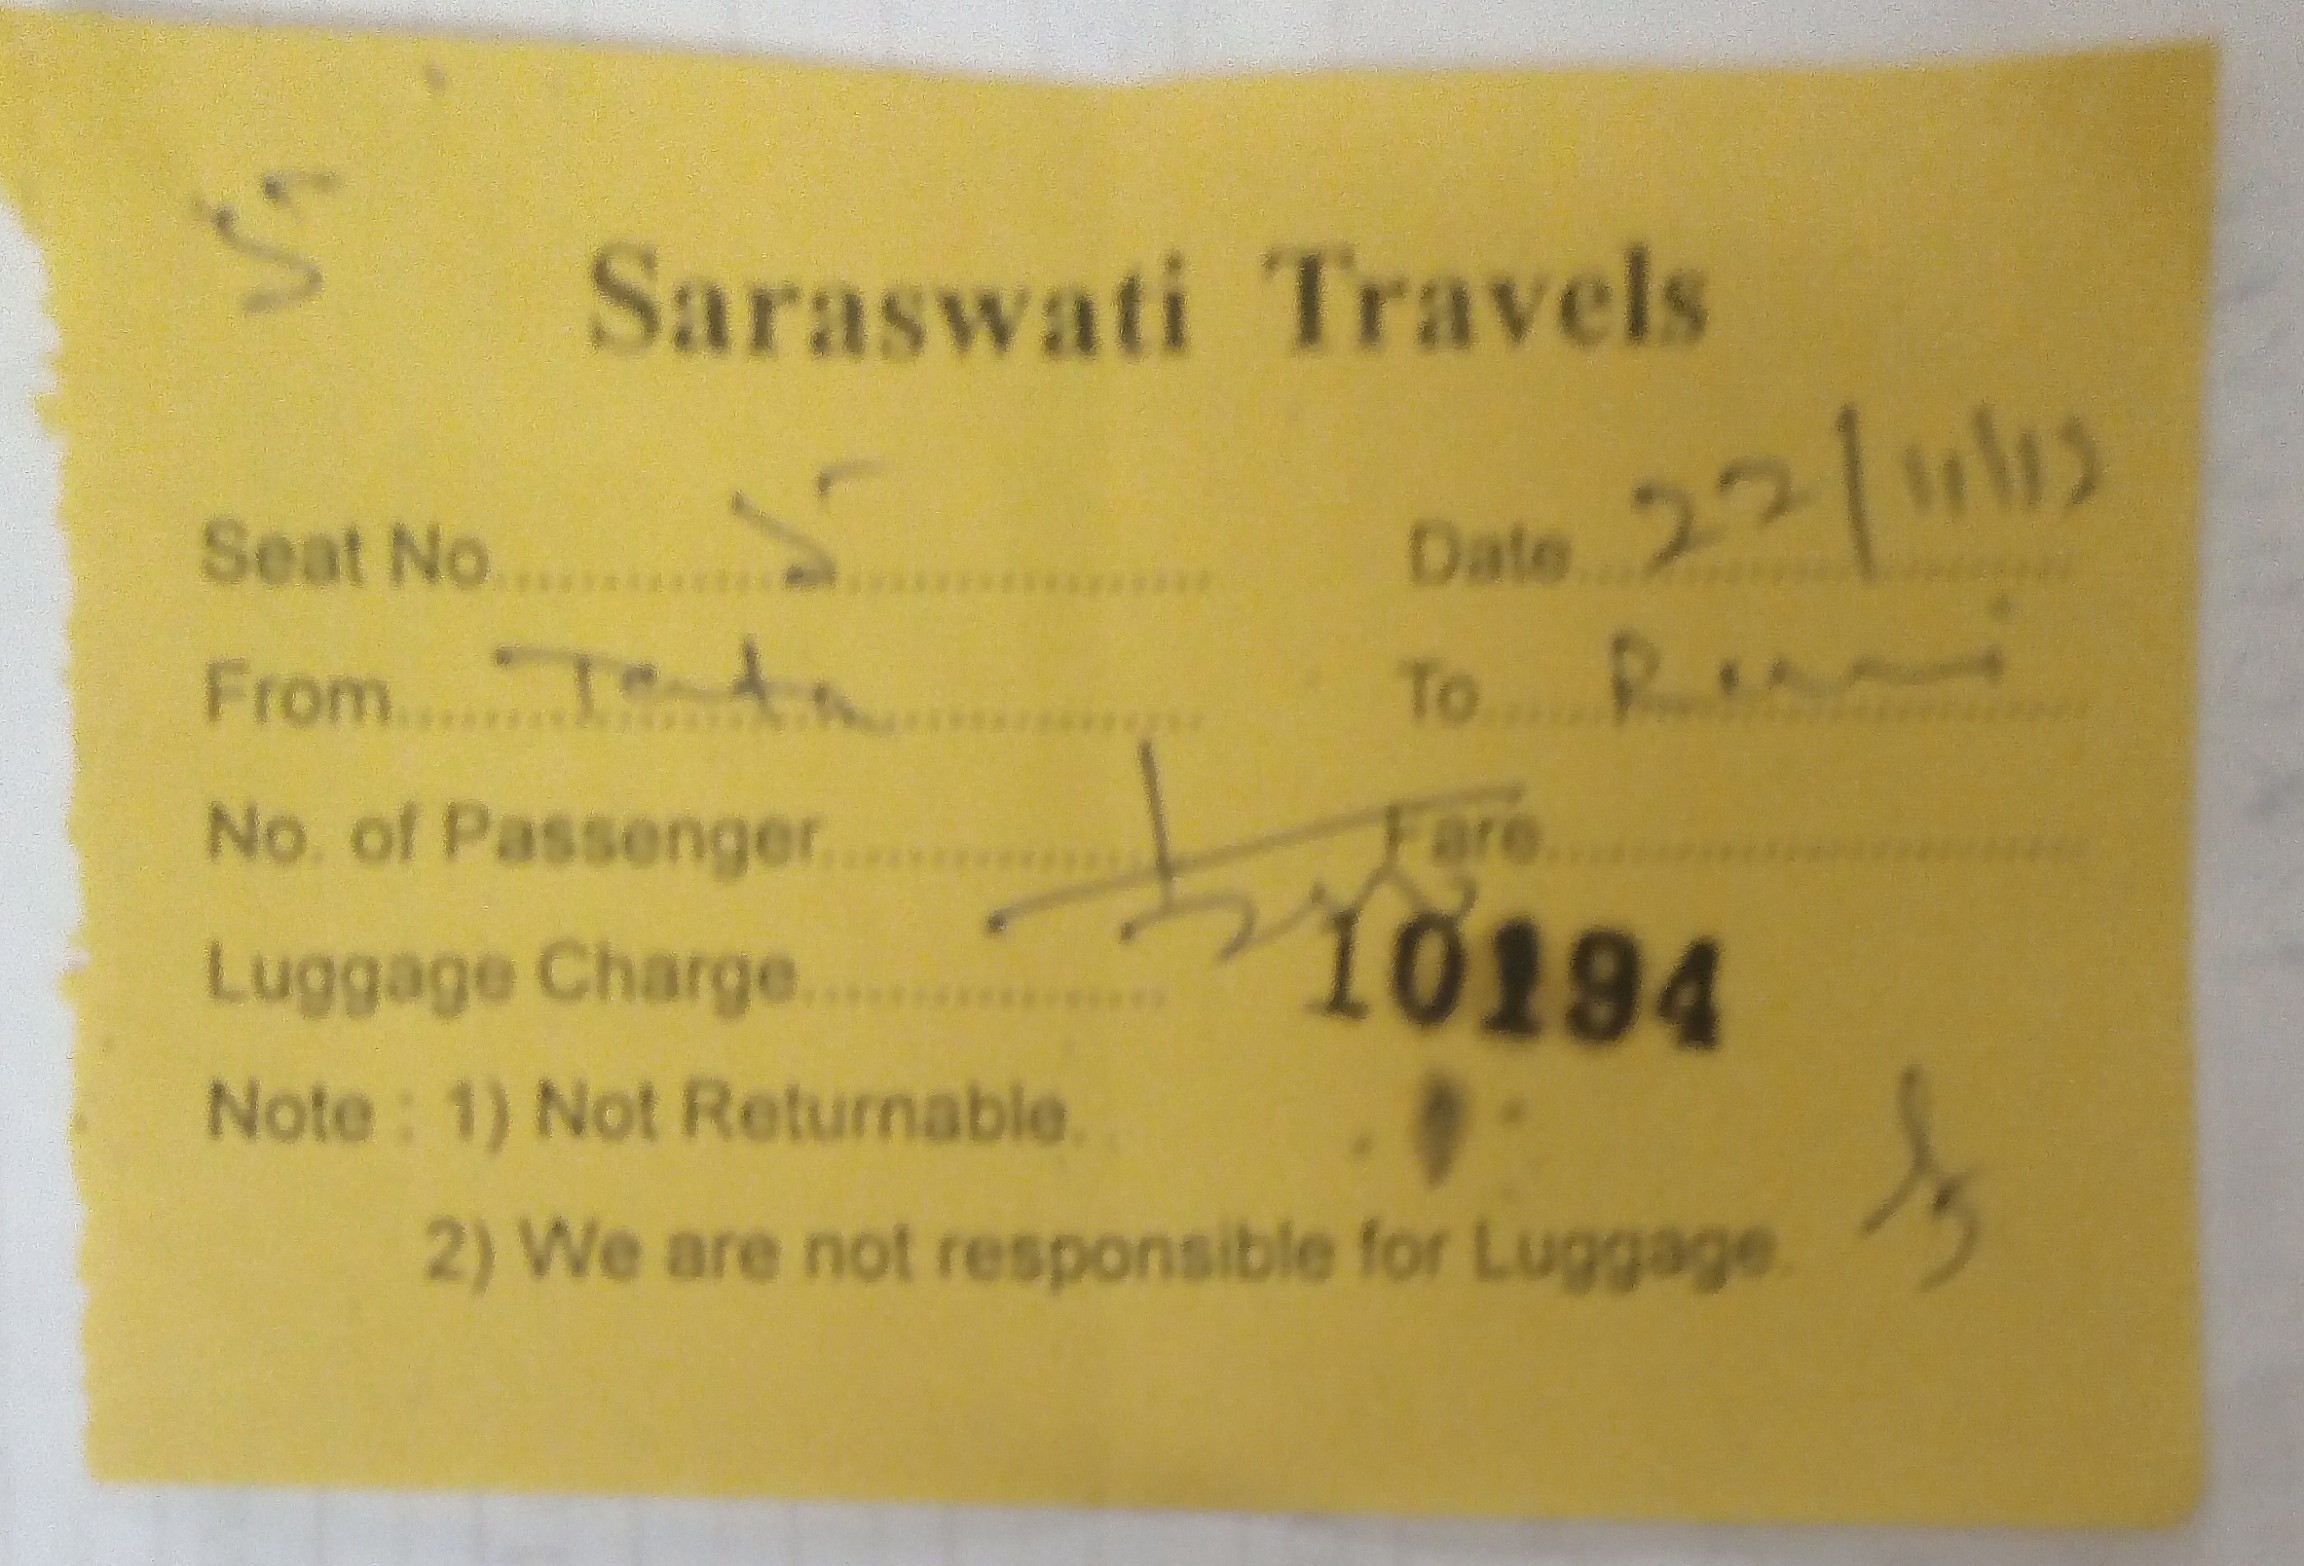 5
Saraswati Travels
Seat No. 5 Date 22/11/12
From Tata To Ranchi
No. of Passenger Fare
Luggage Charge 10194
Note : 1) Not Returnable.
2) We are not responsible for Luggage.